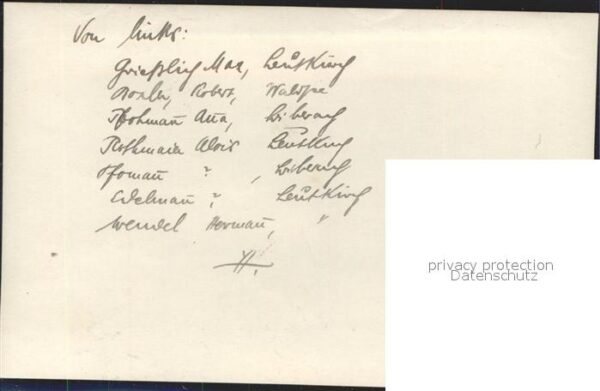 Von links:
Grießlich Max, Leutkirch
Robert, Waldsee
Pfohmañ Biberach
Rothmaier Alois Leutkirch
Pfomañ ? , Biberach
Edelmañ ? Leutkirch
Wendel Hermañ, "
privacy protection
Datenschutz